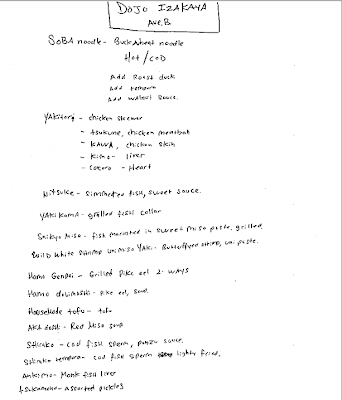 DOJO IZAKAYA
AVE.B
SOBA noodle - Buckwheat noodle
Hot/COD
Add Roast duck
Add tempura
Add walnut sauce.
YAKitori - chicken skewer
- tsukune, chicken meatball
- KAWA, chicken skin
- Kimo - liver
- Cokoro - Heart
Nitsuke - simmered fish, sweet sauce.
YAKi Kama - grilled fish collar
Saikyo Miso - fish marinated in sweet miso paste, grilled
Build White Shrimp uni miso YAki - Butterflyed shrimp, uni paste.
Hamo Genpei - Grilled Pike eel 2-ways
Hamo dobimushi - Pike eel, soup.
Housemade tofu - tofu
AKA dashi - Red Miso soup
Shirako - cod fish sperm, ponzu sauce.
Shirako tempura - cod fish sperm lightly fried.
Ankimo - Monk fish liver
tsukemono - assorted pickles